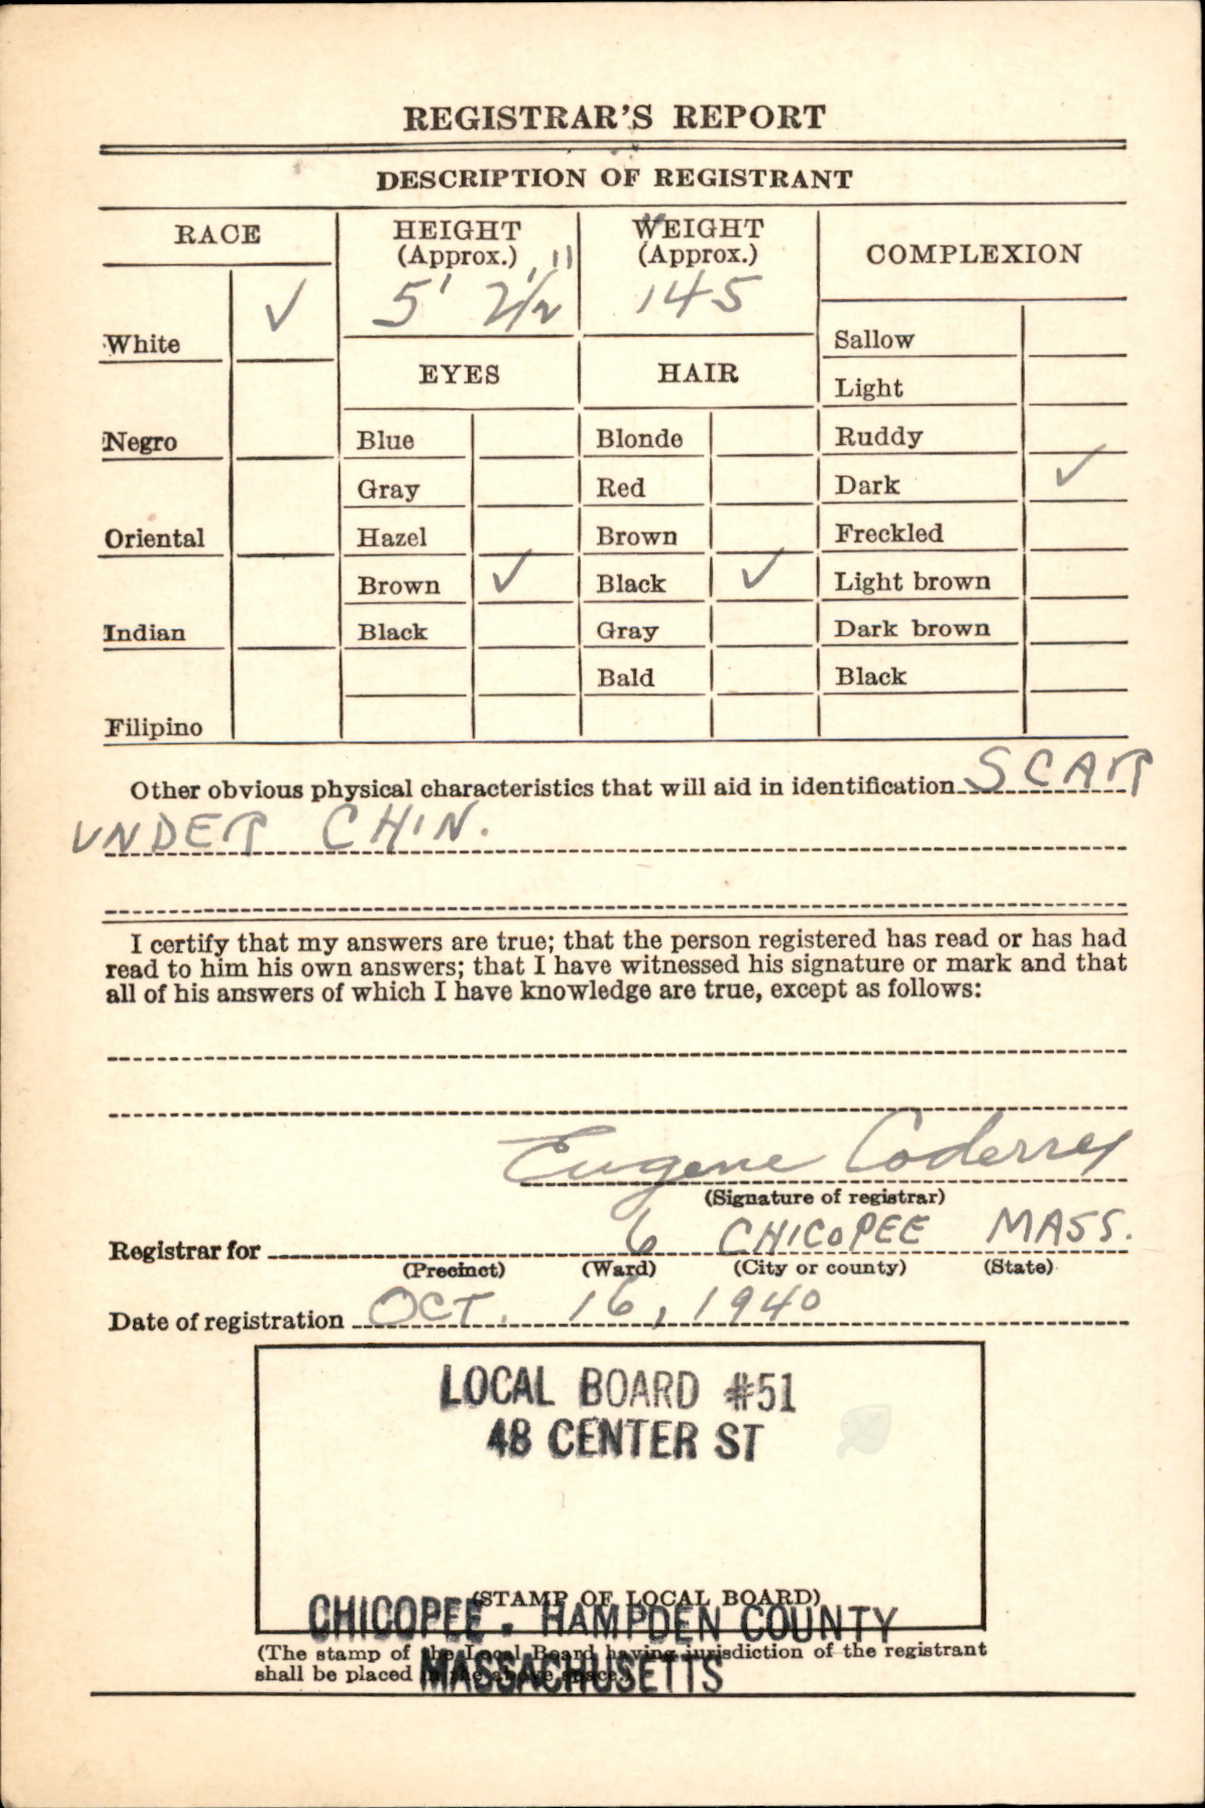 REGISTRAR'S REPORT
DESCRIPTION OF REGISTRANT
RACE
HEIGHT (Approx.)
5' 2 1/2"
WEIGHT (Approx.)
145
COMPLEXION
White ✓
Negro
Oriental
Indian
Filipino
EYES
Blue
Gray
Hazel
Brown ✓
Black
HAIR
Blonde
Red
Brown
Black ✓
Gray
Bald
Sallow
Light
Ruddy
Dark ✓
Freckled
Light brown
Dark brown
Black
Other obvious physical characteristics that will aid in identification SCAR
UNDER CHIN.
I certify that my answers are true; that the person registered has read or has had
read to him his own answers; that I have witnessed his signature or mark and that
all of his answers of which I have knowledge are true, except as follows:
Eugene Coderre
(Signature of registrar)
Registrar for 6 CHICOPEE MASS.
(Precinct) (Ward) (City or county) (State)
Date of registration OCT. 16, 1940
LOCAL BOARD #51
48 CENTER ST
(STAMP OF LOCAL BOARD)
CHICOPEE. HAMPDEN COUNTY
(The stamp of the Local Board having jurisdiction of the registrant
shall be placed in the above space.)
MASSACHUSETTS